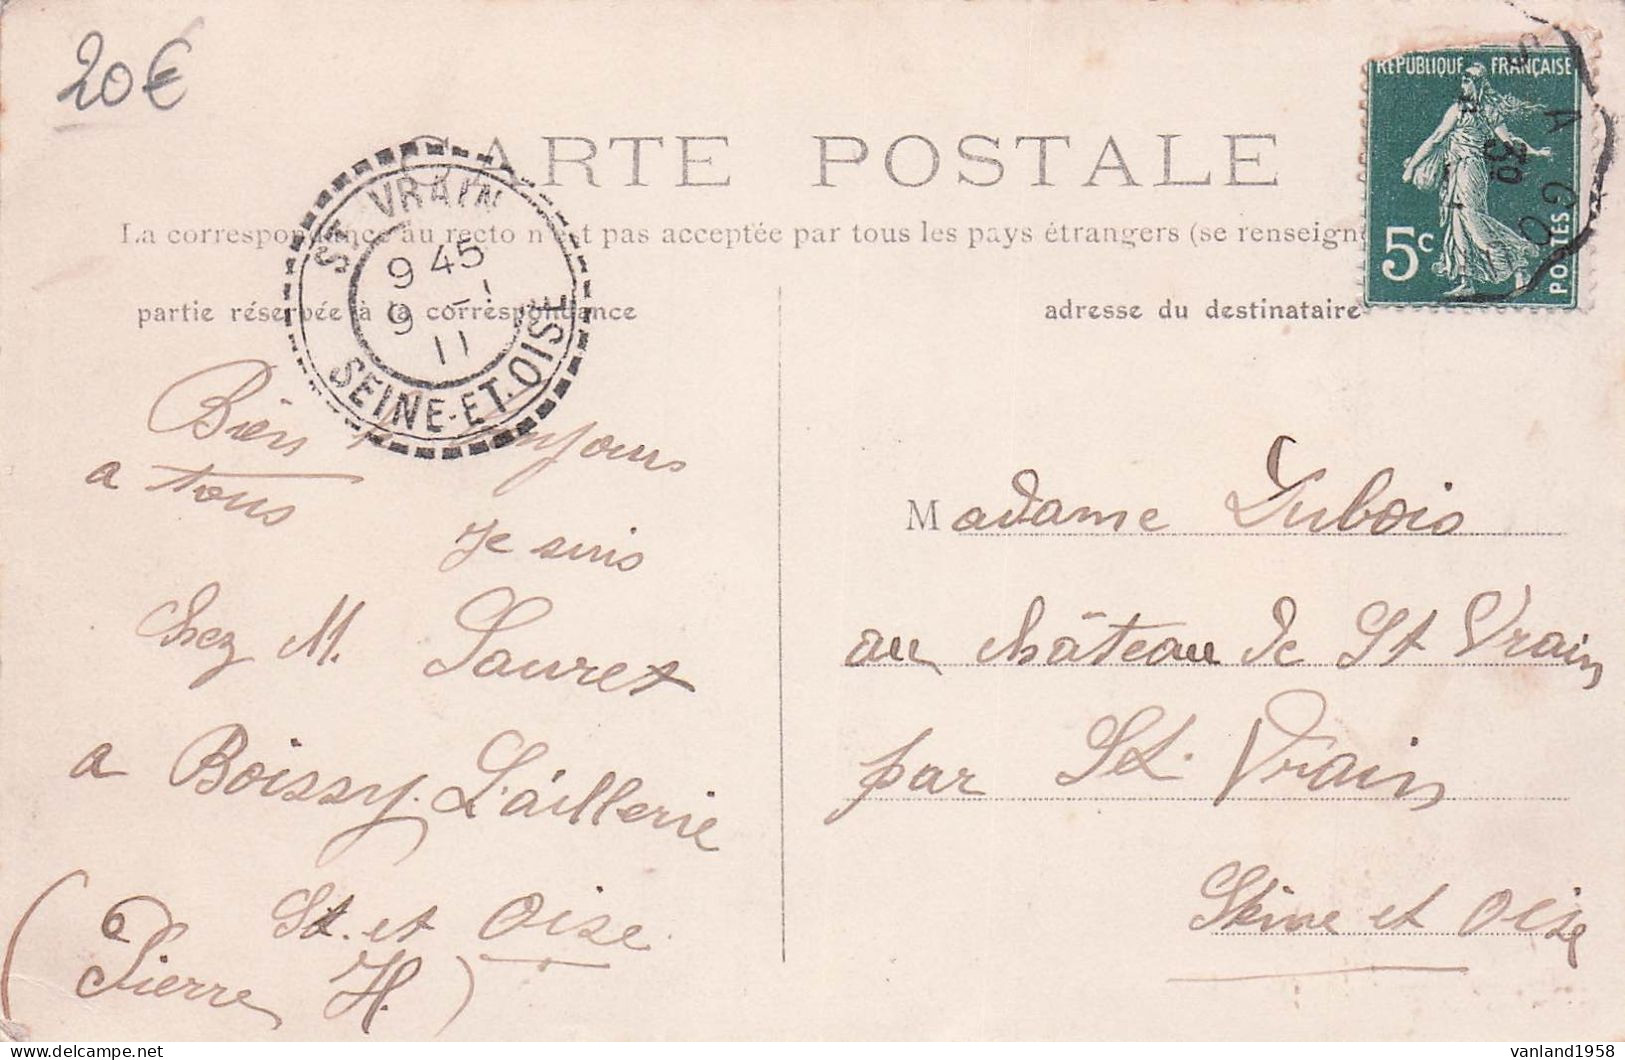 20€
CARTE POSTALE
La correspondance au recto n'est pas acceptée par tous les pays étrangers (se renseign
partie réservée à la correspondance
adresse du destinataire
REPUBLIQUE FRANÇAISE
5c
POSTES
ST VRAIN
9 45
9 -1
11
SEINE-ET-OISE
Bien bonjours
a tous
Je suis
Chez M. Sauret
a Boissy. L'aillerie
St. et Oise
(Pierre H.)
Madame Dubois
au château de St Vrain
par St. Vrain
Seine et Oise
vanland1958